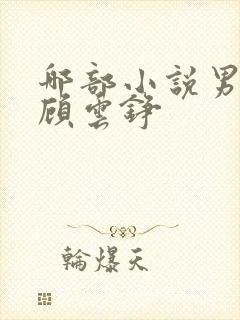 那部小說男
顧雲錚
輪爆天